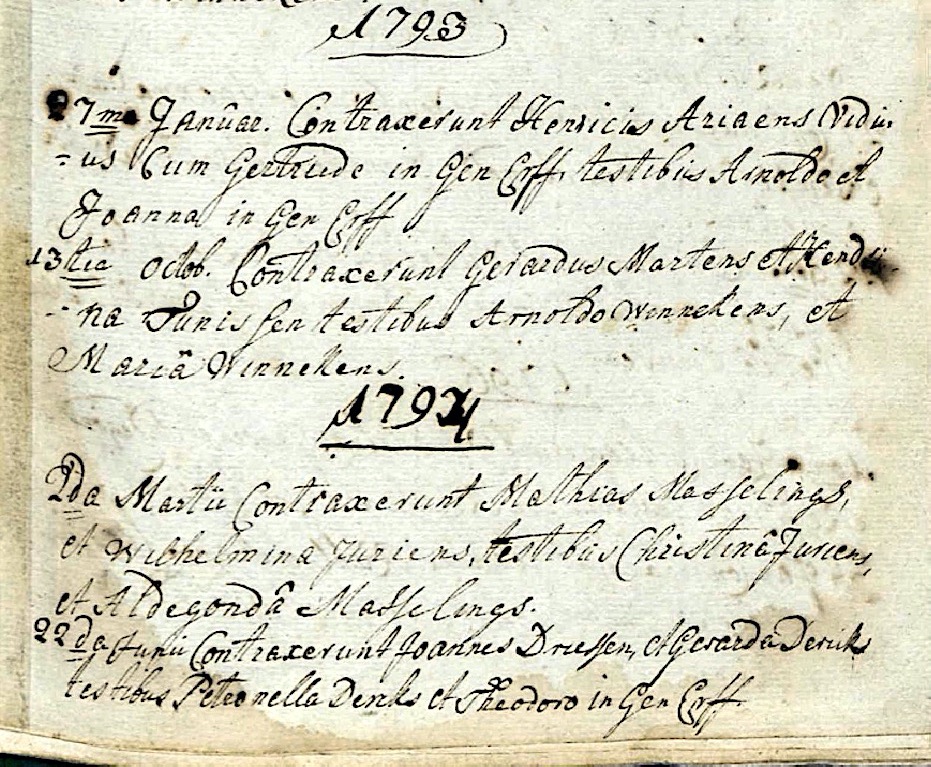 1793
27ma Januar. Contraxerunt Henricus Ariaens Vidu-
=us Cum Gertrude in Gen Erff, testibus Arnoldo et
Joanna in Gen Erff
13tia Octob. Contraxerunt Gerardus Martens et Hendri
-na Tunissen testibus Arnoldo Winnekens, et
Mariâ Winnekens.
1794
2da Martii Contraxerunt Mathias Masselings,
et Wilhelmina Juriens, testibus Christinâ Juriens,
et Aldegondâ Masselings.
22da Junii Contraxerunt Joannes Driessen, et Gerarda Dericks
testibus Petronella Dericks et Theodoro in Gen Erff